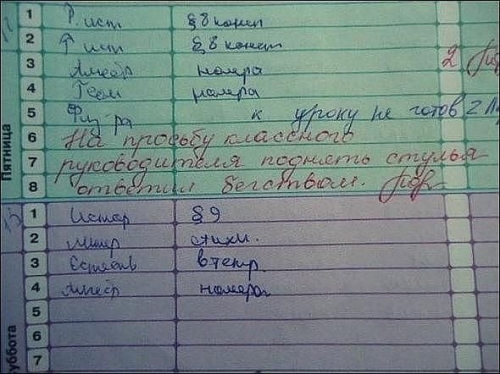 1 Р. ист §8 конеч
2 Р ист §8 конеч
3 Алгебр номера 2
4 Геом номера
5 Физ ра к уроку не готов 2
6 На просьбу классного
7 руководителя поднять стулья
8 ответил бегством.
Пятница
1 Истор §9
2 Литер стихи.
3 Естеств в тетр.
4 Алгебр номера
5
6
7
уббота